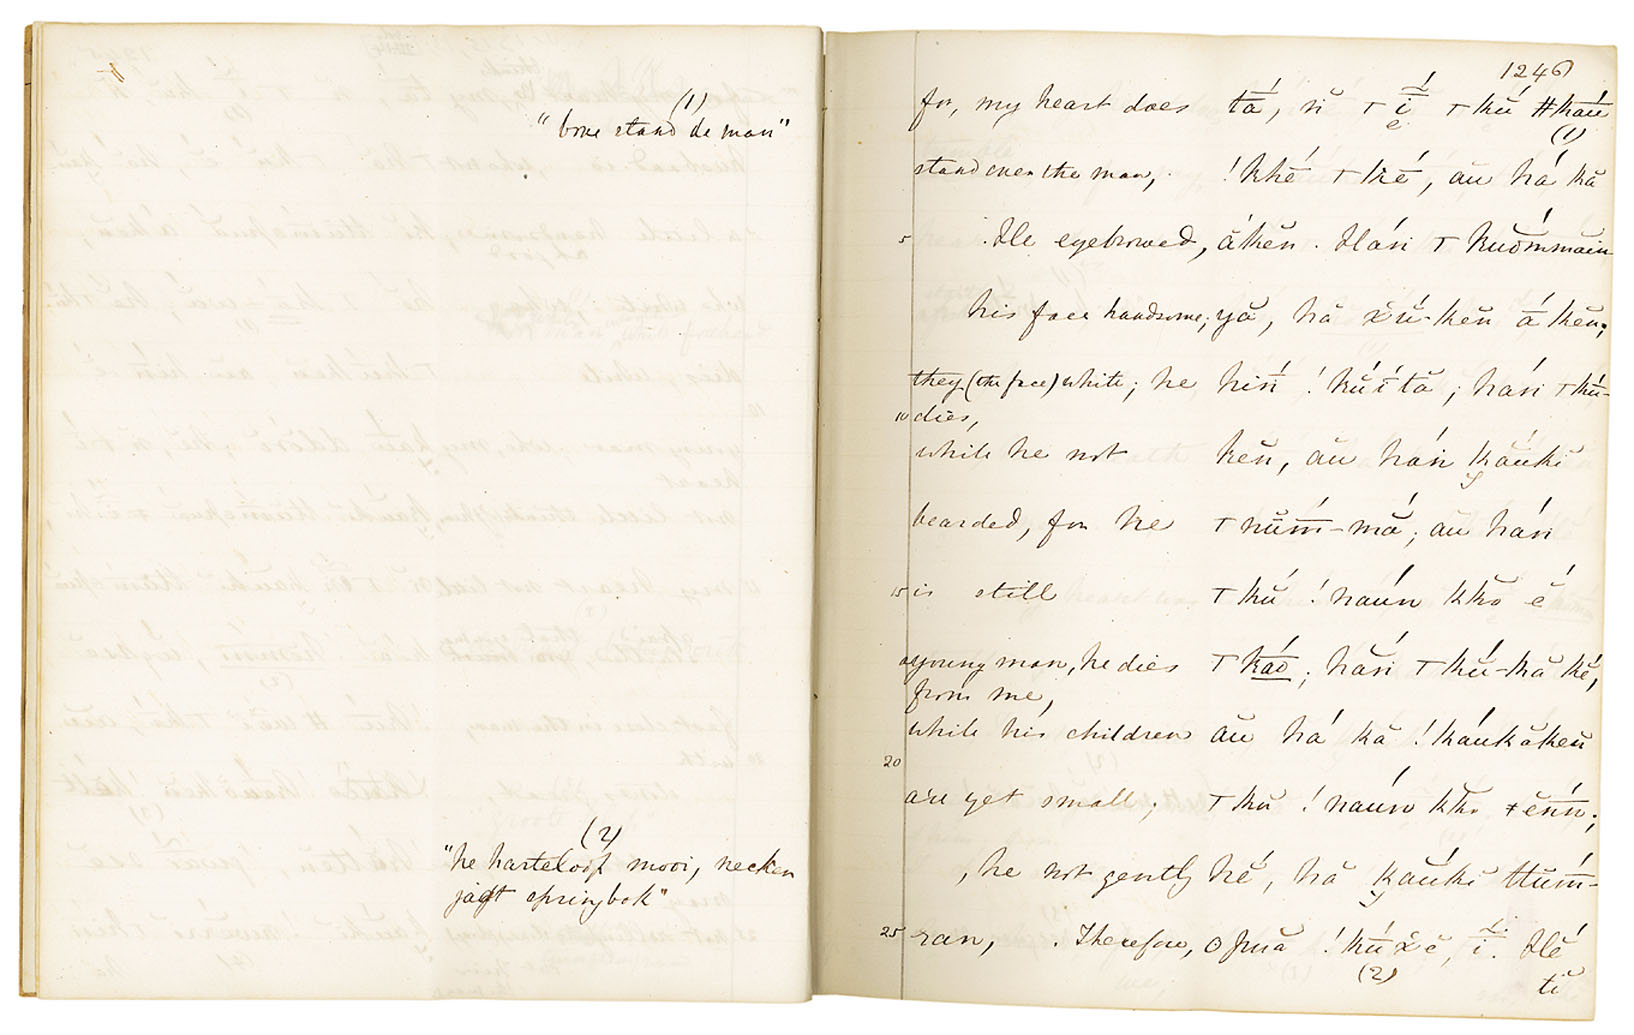 (1)
"bove stand de man"
(2)
"he harteloop mooi, necken
jagt springbok"
1246
for, my heart does tā́, n̆ ⊤ ī́ ⊤ kŭ #kau
(1)
stand over the man, !khé ⊤ ké, au há kă
5 He eyebrowed, ắkĕn. Hán ⊤ kuŏmmain
his face handsome; yă, hă x̆ŭ-kĕn á kĕn;
they (the face) white; he hin !kŭítă; hán ⊤ kŭ-
10 dies,
while he not kĕn, au hán kăukĭ
bearded, for he ⊤ nŭm-mă; au hán
15 is still ⊤ kŭ !naún kkŏ é
a young man, he dies ⊤ káo; hăn ⊤ kŭ-hă kĕ,
from me,
while his children au há kă !káukăkĕn
20
are yet small; ⊤ kŭ !naún kkŏ ≠ĕnn;
, he not gently hĕ, hă kăukĭ ttúm-
25 ran, . Therefore, ʘpuă !kŭx̆ĕ, ī. Hĕ
(2)
tĭ